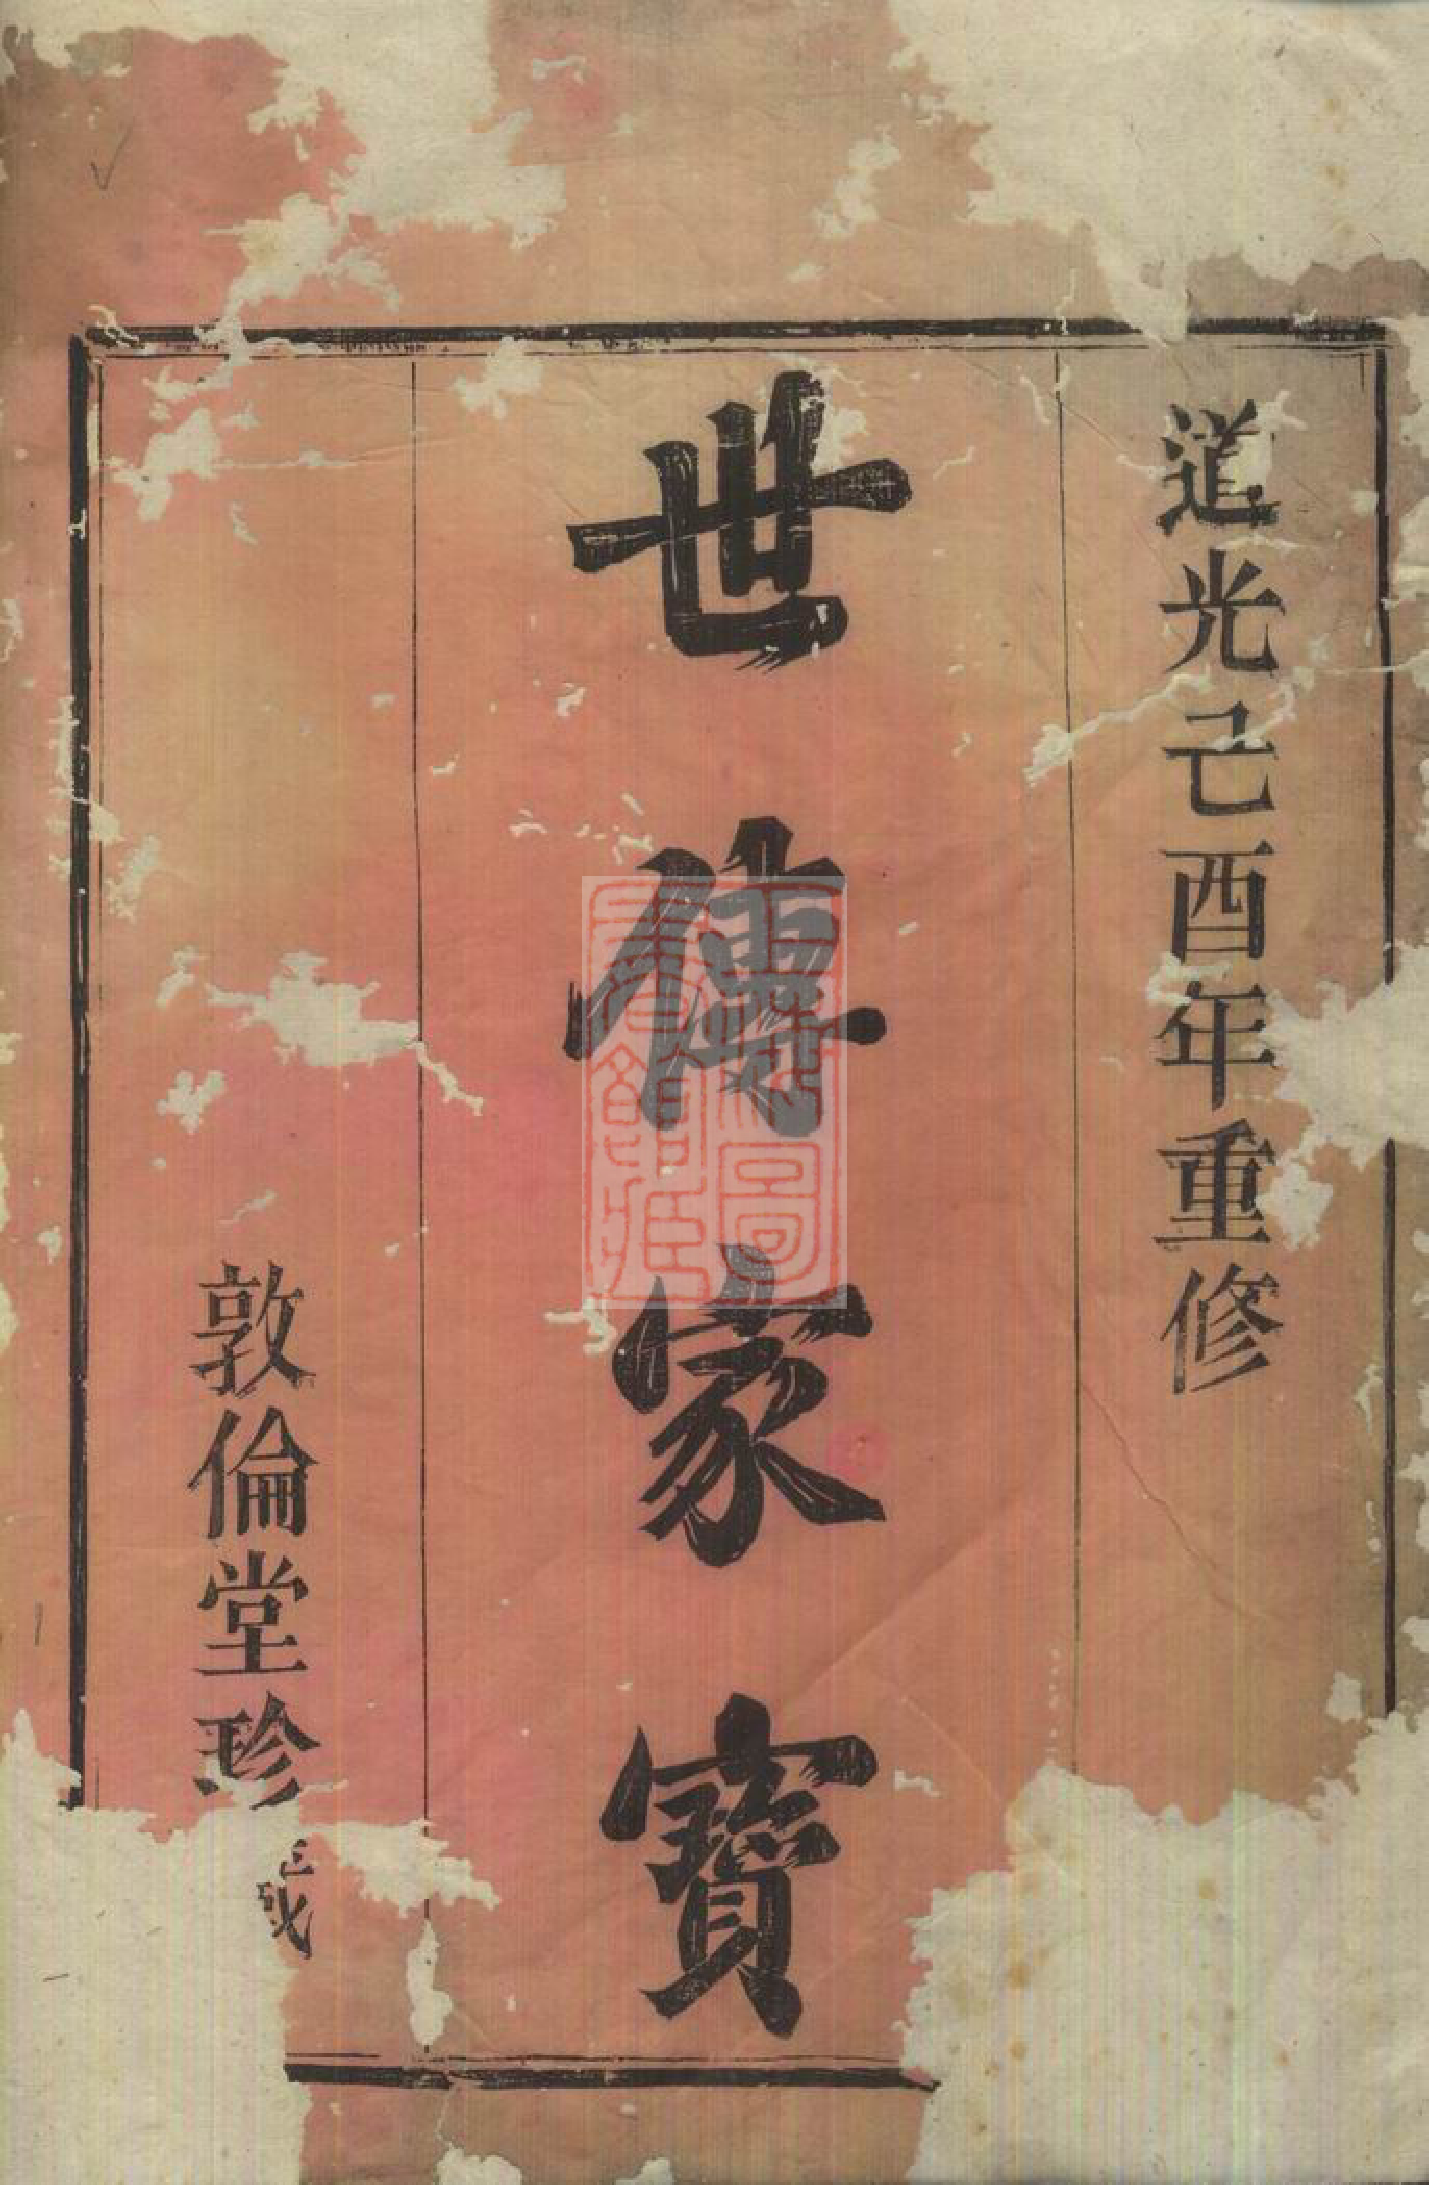 道光己酉年重修
世傳家寶
敦倫堂珍藏